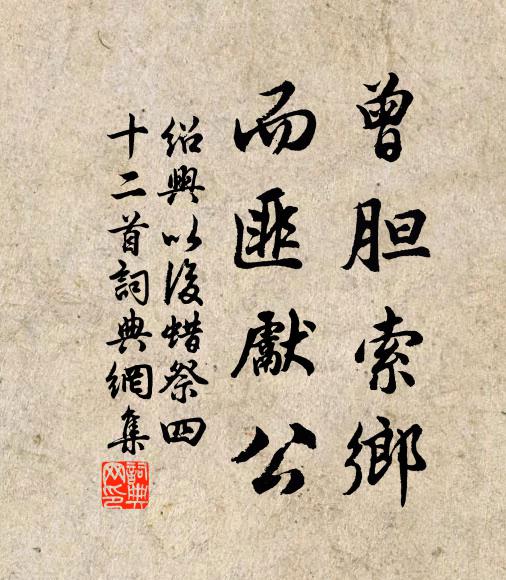 曾胆索鄉
而匪獻公
紹興以後蜡祭四
十二首詞典網集
詞典
网印